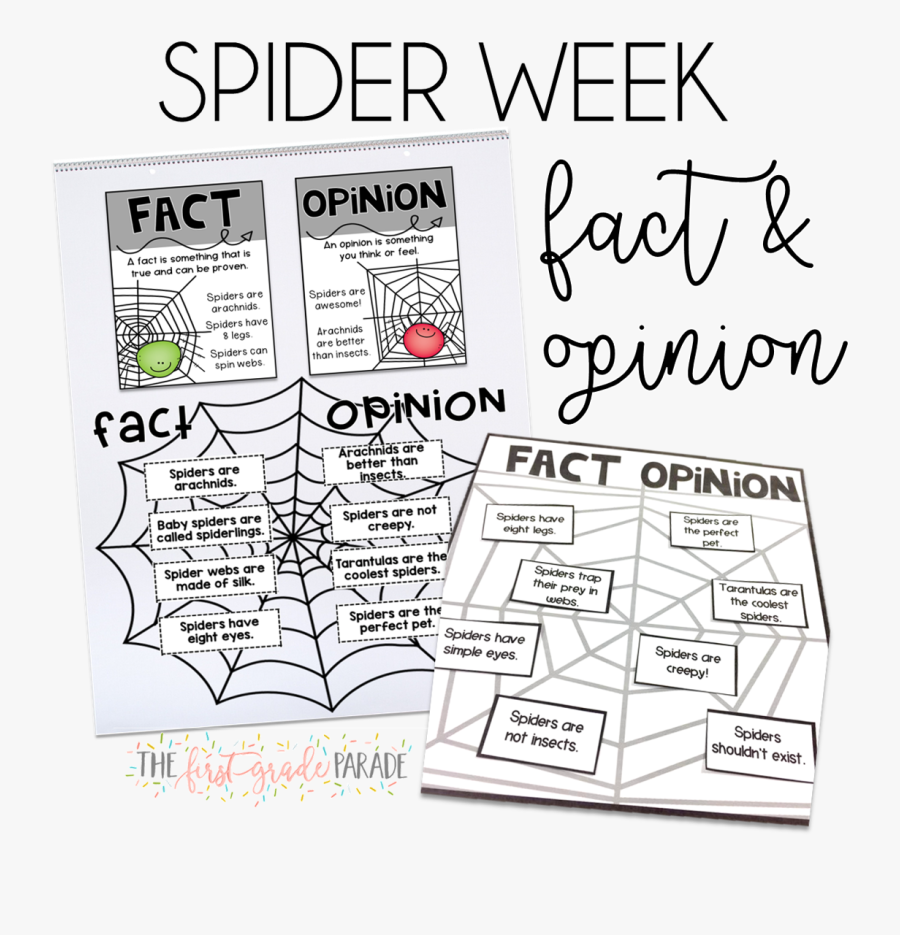 SPIDER WEEK
fact &
opinion
FACT
A fact is something that is
true and can be proven.
Spiders are
arachnids.
Spiders have
8 legs.
Spiders can
spin webs.
OPINION
An opinion is something
you think or feel.
Spiders are
awesome!
Arachnids
are better
than insects.
fact
opinion
Spiders are
arachnids.
Baby spiders are
called spiderlings.
Spider webs are
made of silk.
Spiders have
eight eyes.
Arachnids are
better than
insects.
Spiders are not
creepy.
Tarantulas are the
coolest spiders.
Spiders are the
perfect pet.
FACT OPINION
Spiders have
eight legs.
Spiders trap
their prey in
webs.
Spiders have
simple eyes.
Spiders are
not insects.
Spiders are
the perfect
pet.
Tarantulas are
the coolest
spiders.
Spiders are
creepy!
Spiders
shouldn't exist.
THE first grade PARADE